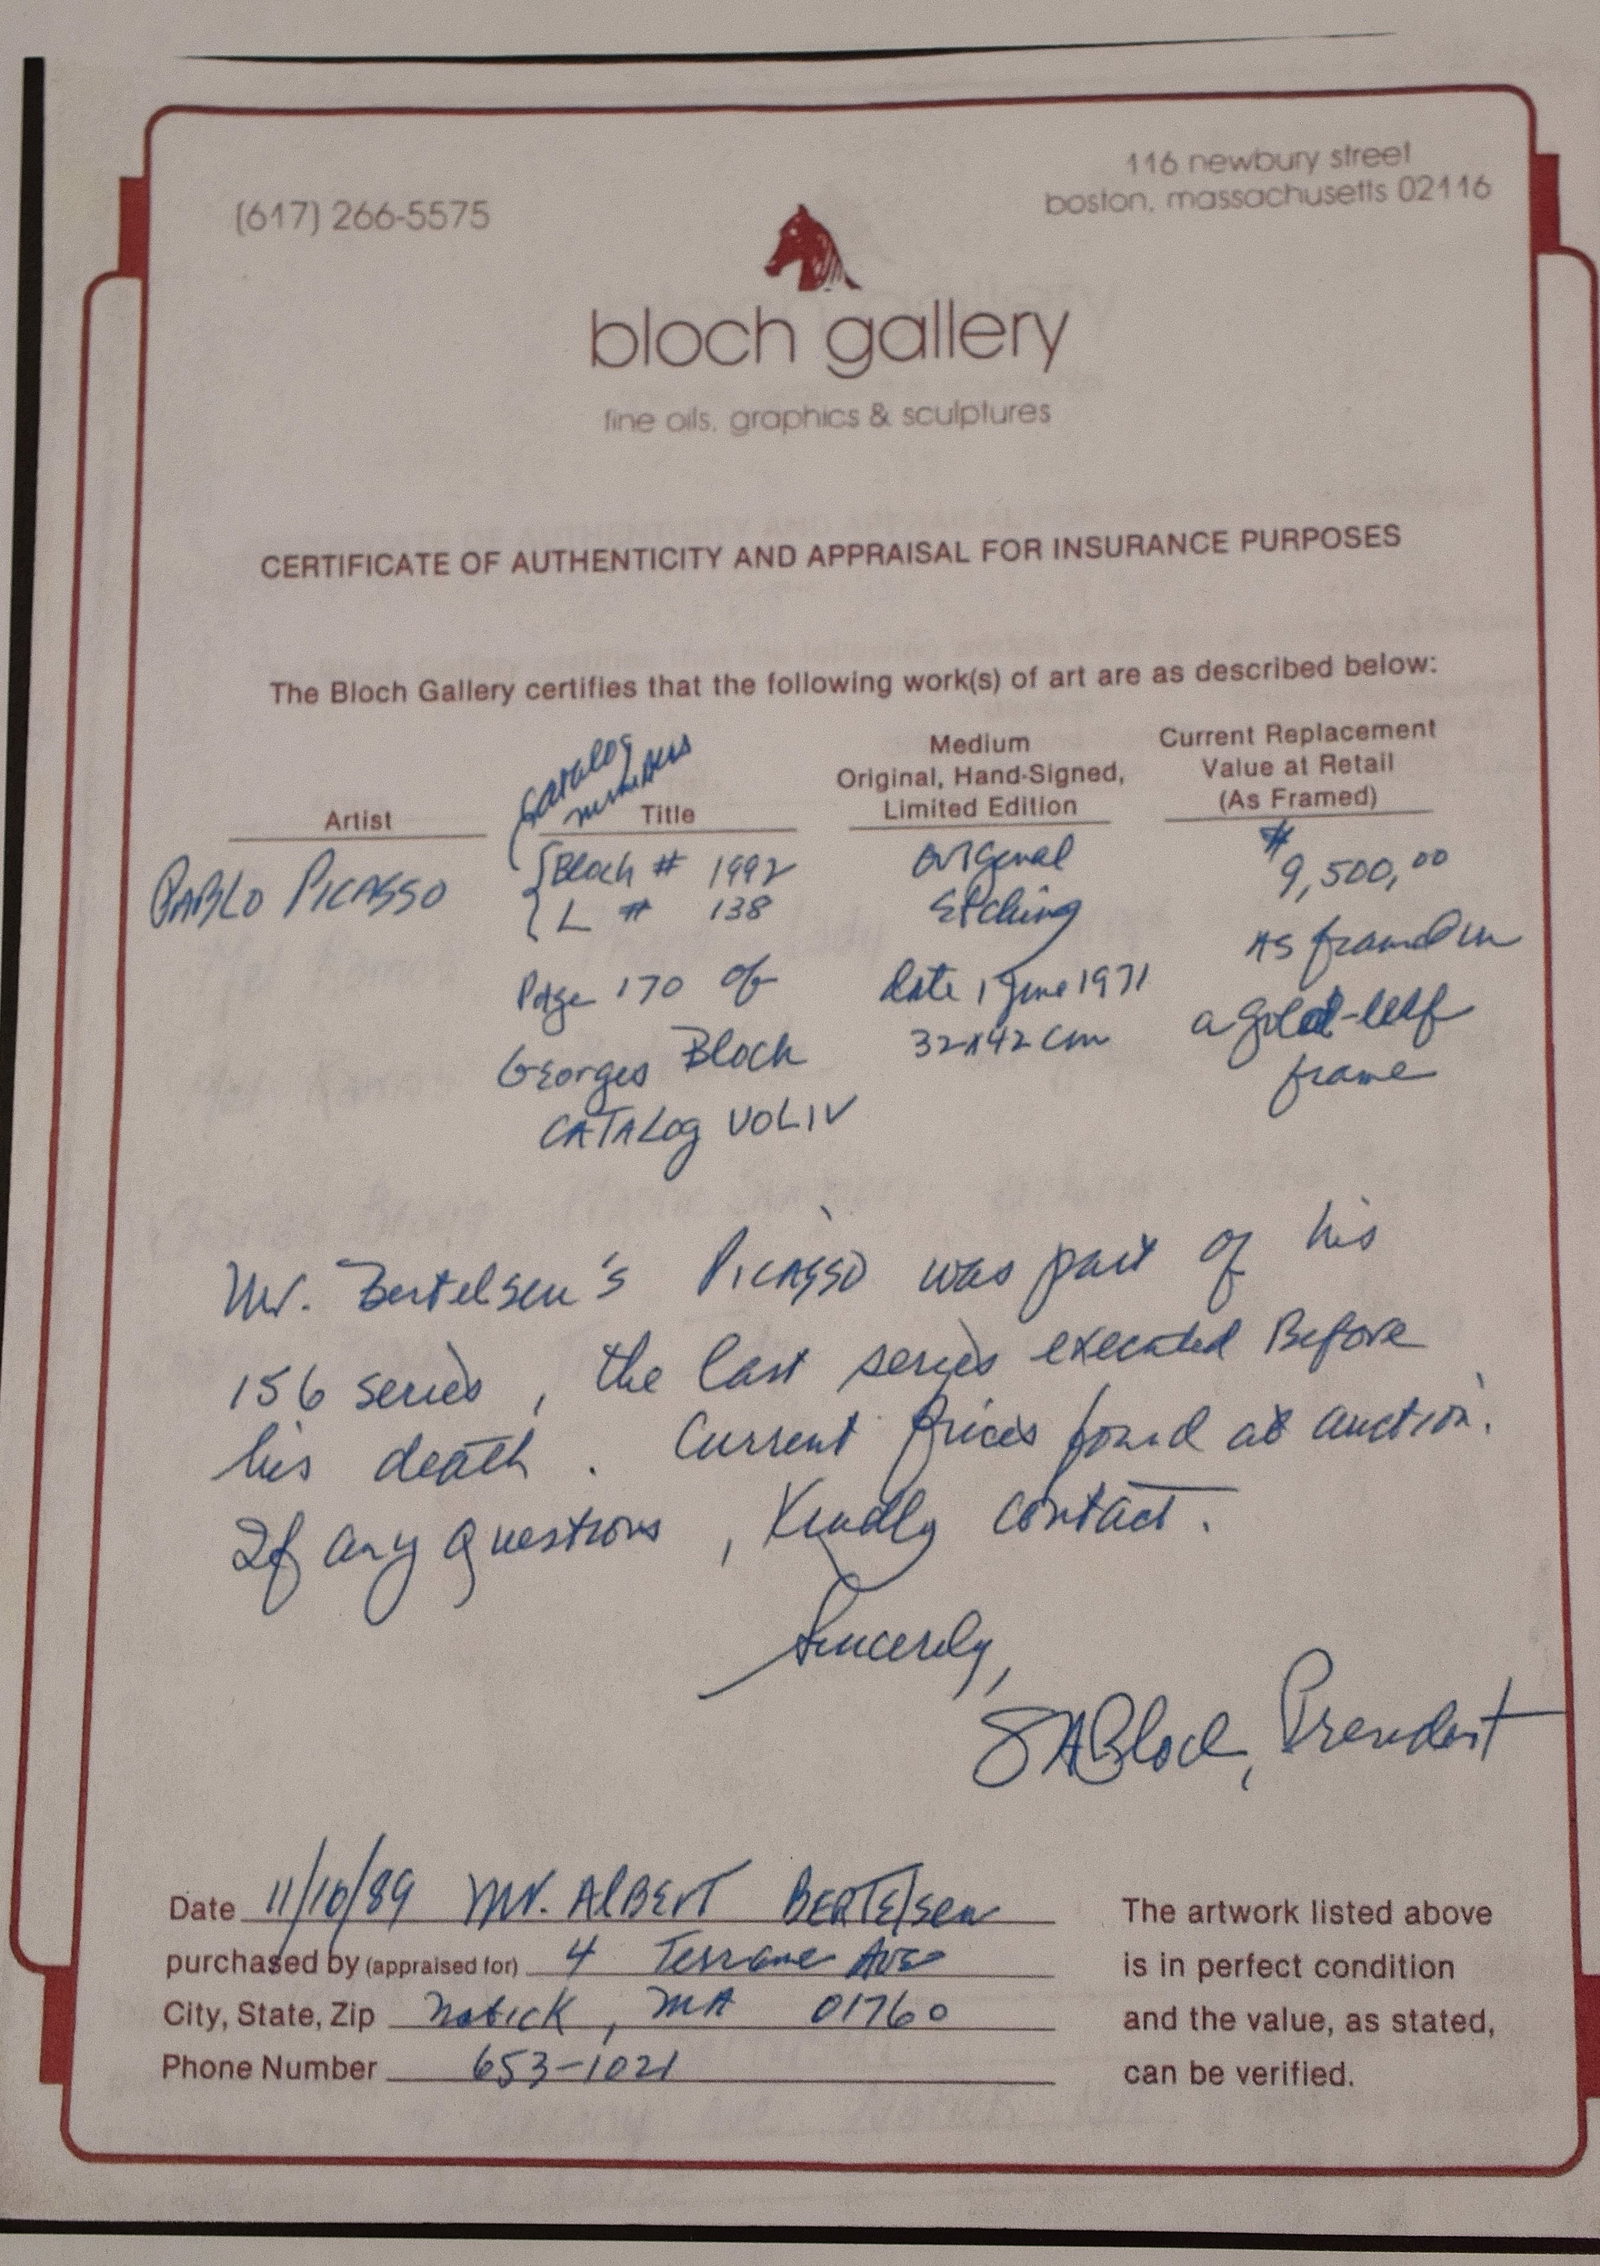 (617) 266-5575
116 newbury street
boston, massachusetts 02116
bloch gallery
fine oils, graphics & sculptures
CERTIFICATE OF AUTHENTICITY AND APPRAISAL FOR INSURANCE PURPOSES
The Bloch Gallery certifies that the following work(s) of art are as described below:
Artist
PABLO PICASSO
Catalog
numbers
Title
Bloch # 1992
L # 138
Page 170 of
Georges Bloch
CATALOG VOL IV
Medium
Original, Hand-Signed,
Limited Edition
Original
Etching
Date 1 June 1971
32x42 cm
Current Replacement
Value at Retail
(As Framed)
$
9,500,00
As framed in
a gold-leaf
frame
Mr. Bertelsen's Picasso was part of his
156 series, the last series executed Before
his death. Current prices found at auction.
If any Questions, Kindly contact.
Sincerely,
SABloch, President
Date 11/10/89 Mr. ALBERT BERTElsen
purchased by (appraised for) 4 Terrane Ave
City, State, Zip Natick, MA 01760
Phone Number 653-1021
The artwork listed above
is in perfect condition
and the value, as stated,
can be verified.